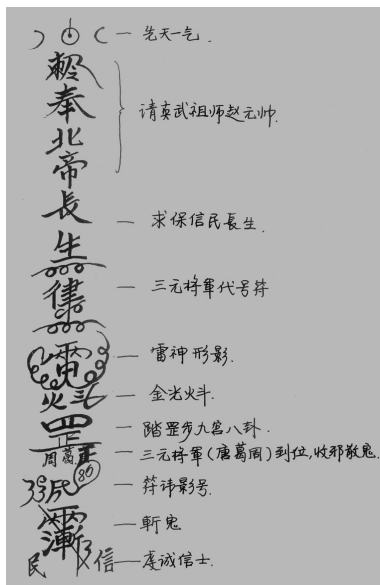 先天一气.
敕
奉
北
帝
请真武祖师赵元帅.
長
生
求保信民長生.
律
三元将軍代号符
電
雷神形影.
火斗
金光火斗.
罡
踏罡步九宫八卦.
周葛
三元将軍(唐葛周)到位,收邪敬鬼.
符讳影号.
斬鬼
民 信
虔诚信士.